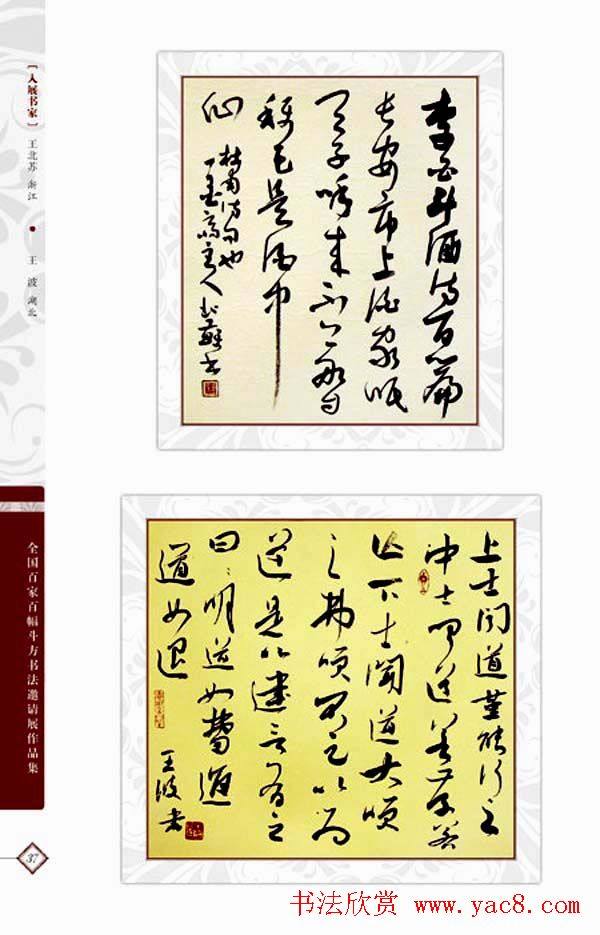 [入展书家]
王北苏 浙江
王波 湖北
全国百家百幅斗方书法邀请展作品集
37
李白斗酒诗百篇
长安市上酒家眠
天子呼来不上船自
称臣是酒中
仙 杜甫诗句也
主人北苏书
上士闻道堇能行之
中士闻道若存若
亡下士闻道大笑
之弗笑不足以为
道是以建言有之
曰明道如费进
道如退
王波书
书法欣赏 www.yac8.com